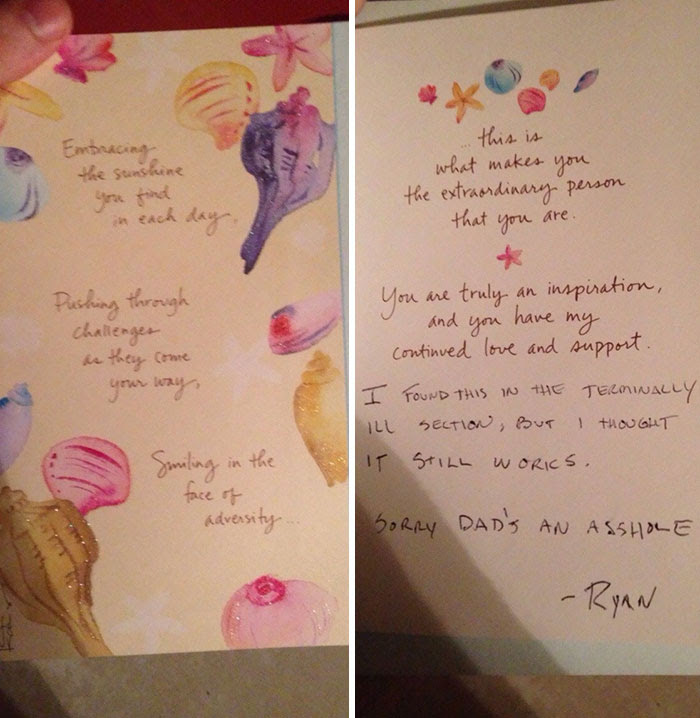 Embracing
the sunshine
you find
in each day,
Pushing through
challenges
as they come
your way,
Smiling in the
face of
adversity...
...this is
what makes you
the extraordinary person
that you are.
You are truly an inspiration,
and you have my
continued love and support.
I FOUND THIS IN THE TERMINALLY
ILL SECTION, BUT I THOUGHT
IT STILL WORKS.
SORRY DAD'S AN ASSHOLE
-RYAN